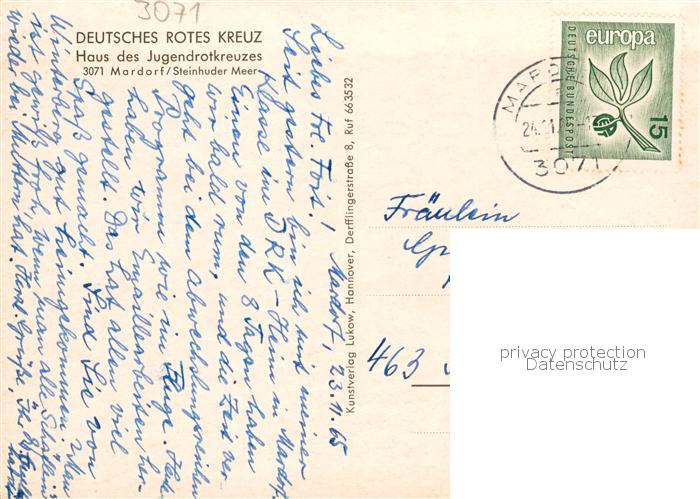 3071
DEUTSCHES ROTES KREUZ
Haus des Jugendrotkreuzes
3071 Mardorf/Steinhuder Meer
Mardorf, 23.11.65
Liebes Frl.
Seit gestern bin ich mit meiner
Klasse im DRK-Heim in Mardorf.
Einen von den 8 Tagen haben
wir bald rum, und die Zeit ver-
geht bei dem abwechslungsreichen
Programm wie im Fluge. Heute
haben wir Emaillearbeiten her-
gestellt. Das hat allen viel
Spaß gemacht. Sind Sie von
Winterberg gut heimgekommen? Man
ist gewiß froh, wenn man alle Schäflein
wieder bei Muttern hat. Herzl. Grüße, Ihr
Kunstverlag Lukow, Hannover, Derfflingerstraße 8, Ruf 663532
MARDORF
24.11.
3071
europa
DEUTSCHE BUNDESPOST
15
Fräulein
463
privacy protection
Datenschutz